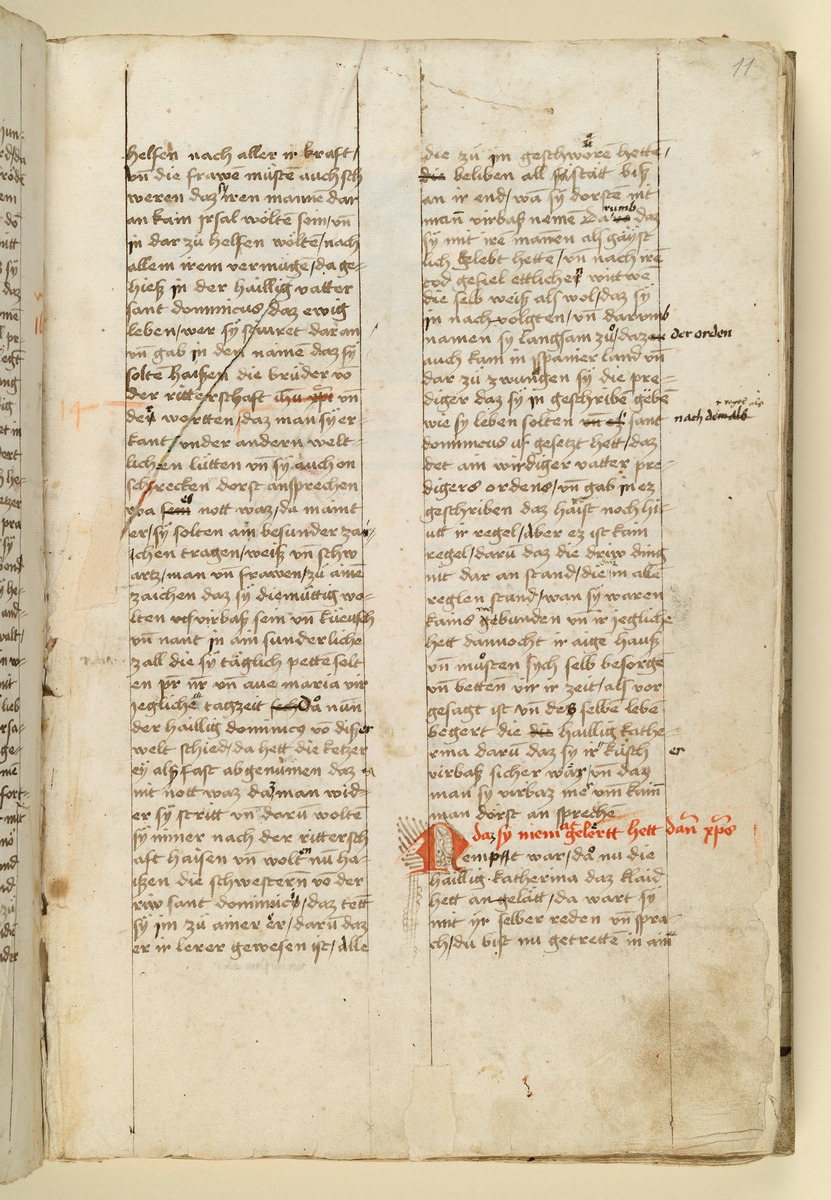 11
helfen nach aller ir kraft/
vn̄ die frawe müstē auch sch
weren daz iren mannen dar
an kain irsal wölte sein/vn̄
in dar zü helfen wöltē/nach
allem irem vermügē/da ge-
hieß in der haillig vatter
sant dominicus/daz ewig
leben/wer sy stiuret dar an
vn̄ gab in den namē daz sy
soltē haißen die brüder vō
der ritterschaft ihu xp̄i vn̄
den wortten/daz man sy er-
kant/under andern welt-
lichen lütten vn̄ sy auch on
schrecken dorst ansprechen
wa es nott waz/da maint
er/sy solten ain besunder zai-
chen tragen/weiß vn̄ schw
artz/man vn̄ frawen/zü ainē
zaichen daz sy diemüttig wo-
lten virbaß sein vn̄ küensch
vn̄ nant in ain sunderliche
zall die sy täglich pettē solt
en pr̄ nr̄ vn̄ aue maria vir
jegliche tagzeit Da nūn
der haillig dominicꝰ vō dißer
welt schied/da hett die ketzer
ey alß fast abgenūmen daz
nit nott waz daz man wid-
er sy stritt vn̄ darū woltē
sy nimer nach der rittersch
aft haisen vn̄ woltē nū ha-
ißen die schwestern vō der
riw sant dominicꝰ/daz tett
sy im zü ainer er/darū daz
er ir lerer gewesen ist/Alle
die zü im geschworē hettē/
die beliben all fastātt biß
an ir end/wā sy dorsten nit
man̄ virbaß nemē Darumb daz
sy mit irē mannen als gäyst
lich gelebt hette/vn̄ nach irē
tod gefiel ettlichen wittwē
die selb weiß als wol/daz sy
in nach volgten/vn̄ darumb
namen sy langsam zü/daz der orden
auch kam in ispanier land vn̄
dar zü zwungen sy die pre-
diger daz sy in geschribē gebē
wie sy leben solten nach dem als sant
dominicus uf gesetzt hett/daz
det ain wirdiger vatter pre-
digers ordens/vn̄ gab in ez
geschriben daz haist noch hi-
utt ir regel/Aber ez ist kain
regel/darū daz die driw ding
nit dar an stand/die in allē
reglen stand/wan sy waren
kains gebunden vn̄ ir jegliche
hett dannocht ir aigē hauß
vn̄ müsten sych selb besorgē
vn̄ betten vir ir zeit/als vor
gesagt ist vn̄ des selbē lebē
begert die haillig kathe-
rina darū daz sy ir küsch er
virbaß sicher wär/vn̄ daz
man sy virbaz me vm̄ kain
man dorst an sprechē
daz sy niem gelertt hett dan̄ xp̄o
Nempt war/da nu die
haillig katherina daz klaid
hett an gelätt/da wart sy
mit ir selber reden vn̄ spra-
ch/du bist nu getrettē in ain